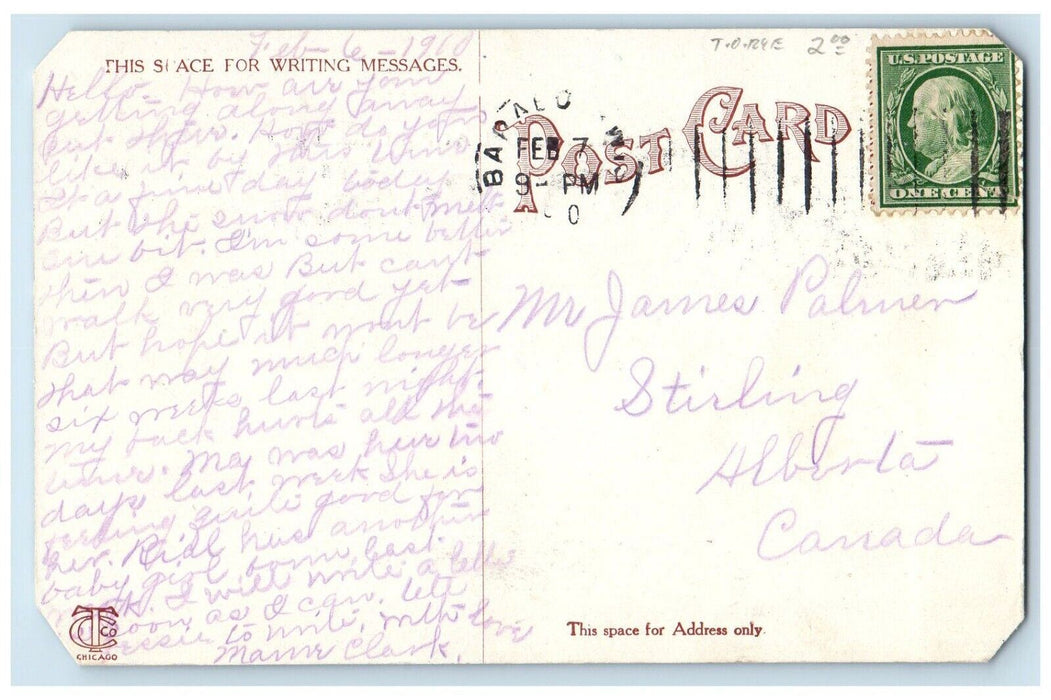 Feb - 6 - 1910
T.O.RYE 2.00
THIS SPACE FOR WRITING MESSAGES.
Hello. How are you
getting along away
out ther. How do you
like it by this time
It a fine day today
But the snow dont melt
any bit. I'm some better
then I was But cant
walk very good yet-
But hope it wont be
that way much longer
six weeks last night.
my back hurts all the
time. May was here two
days last week She is
feeling quite good for
her. has another
baby girl born last
week. I will write a letter
as soon as I can. tell
Bessie to write, with love
Mame Clark.
POST CARD
FEB 7
9 - PM
0
U.S. POSTAGE
ONE CENT
Mr James Palmer
Stirling
Alberta
Canada
This space for Address only
CT Co
CHICAGO